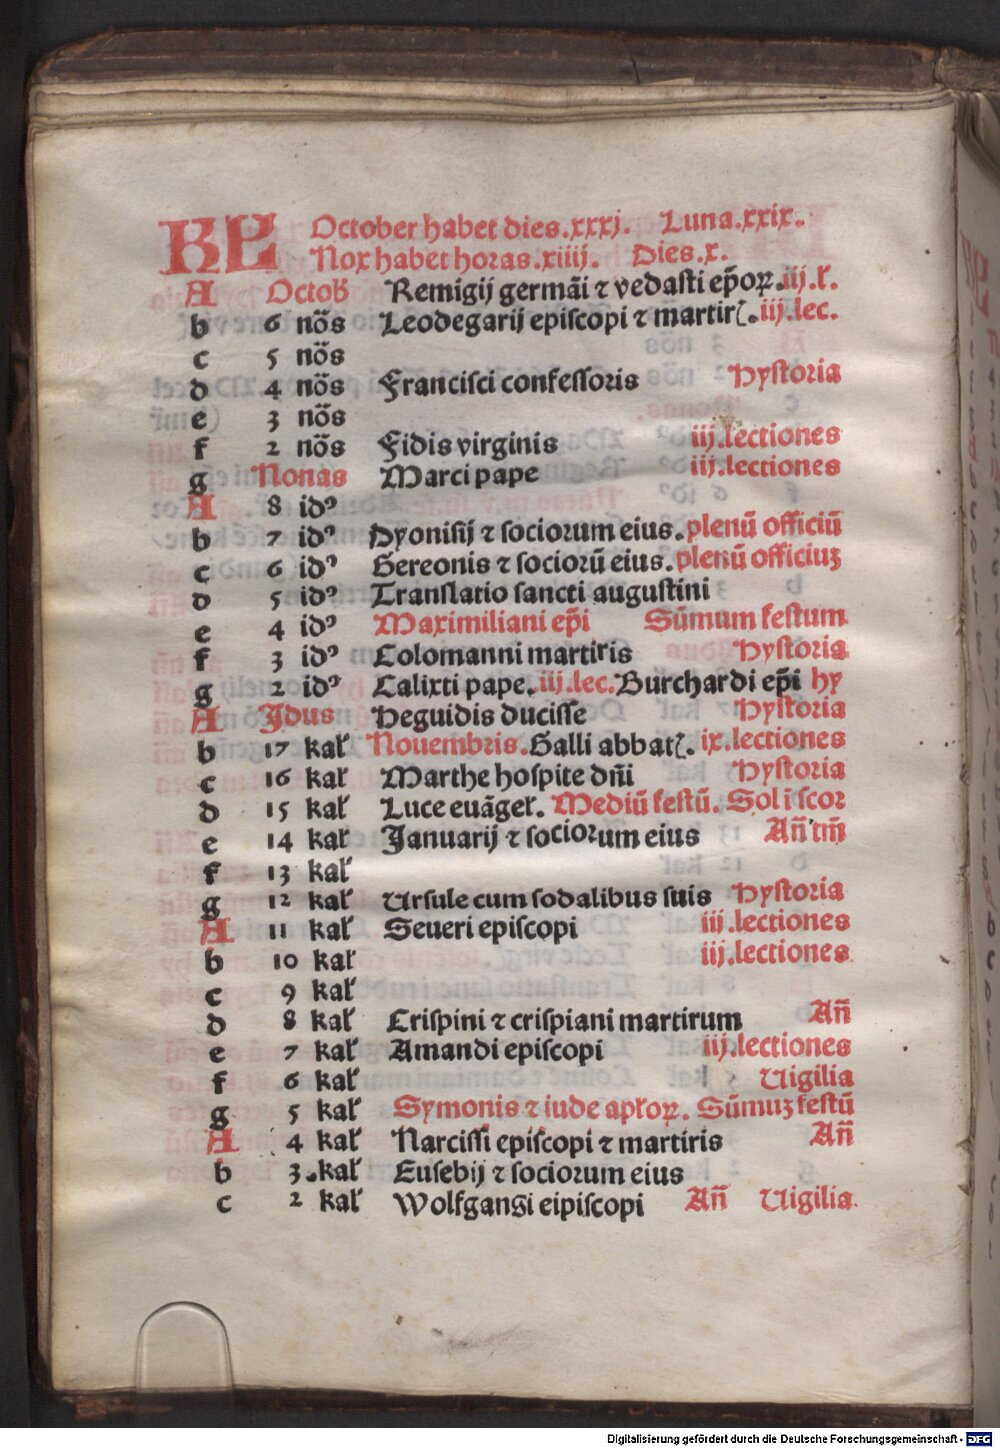 KL October habet dies.xxxj. Luna.xxix.
Nox habet horas.xiiij. Dies.x.
A Octob Remigij germāi ⁊ vedasti ep̄oꝝ.iij.l'.
b 6 nōs Leodegarij episcopi ⁊ martirꝭ.iij.lec.
c 5 nōs
d 4 nōs Francisci confessoris Hystoria
e 3 nōs
f 2 nōs Fidis virginis iij.lectiones
g Nonas Marci pape iij.lectiones
A 8 idꝰ
b 7 idꝰ Dyonisij ⁊ sociorum eius.plenū officiū
c 6 idꝰ Gereonis ⁊ sociorū eius.plenū officiuꝫ
d 5 idꝰ Translatio sancti augustini
e 4 idꝰ Maximiliani ep̄i Sūmum festum
f 3 idꝰ Colomanni martiris Hystoria
g 2 idꝰ Calixti pape.iij.lec.Burchardi ep̄i hy
A Jdus Heguidis ducisse Hystoria
b 17 kal' Nouembris.Galli abbatꝭ. ix.lectiones
c 16 kal' Marthe hospite dn̄i Hystoria
d 15 kal' Luce euāgel'. Mediū festū. Sol i scor
e 14 kal' Januarij ⁊ sociorum eius An̄ tm̄
f 13 kal'
g 12 kal' Ursule cum sodalibus suis Hystoria
A 11 kal' Seueri episcopi iij.lectiones
b 10 kal' iij.lectiones
c 9 kal'
d 8 kal' Crispini ⁊ crispiani martirum An̄
e 7 kal' Amandi episcopi iij.lectiones
f 6 kal' Uigilia
g 5 kal' Symonis ⁊ iude apl'oꝝ. Sūmuꝫ festū
A 4 kal' Narcissi episcopi ⁊ martiris An̄
b 3.kal' Eusebij ⁊ sociorum eius
c 2 kal' Wolfgangi eipiscopi An̄ Uigilia.
Digitalisierung gefördert durch die Deutsche Forschungsgemeinschaft - DFG